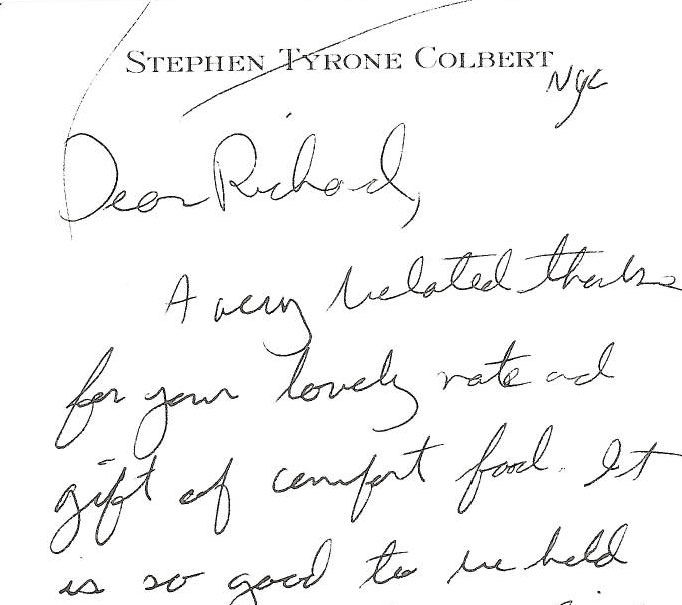 STEPHEN TYRONE COLBERT
NYC
Dear Richard,
A very belated thanks
for your lovely note and
gift of comfort food. It
is so good to be held